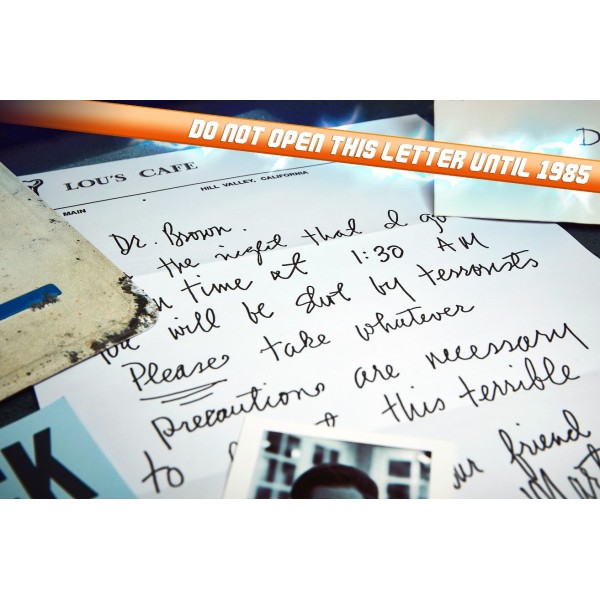 DO NOT OPEN THIS LETTER UNTIL 1985
D
LOU'S CAFE
HILL VALLEY, CALIFORNIA
MAIN
Dr. Brown.
the night that I go
time at 1:30 AM
you will be shot by terrorists
Please take whatever
precautions are necessary
to this terrible
friend
Mart